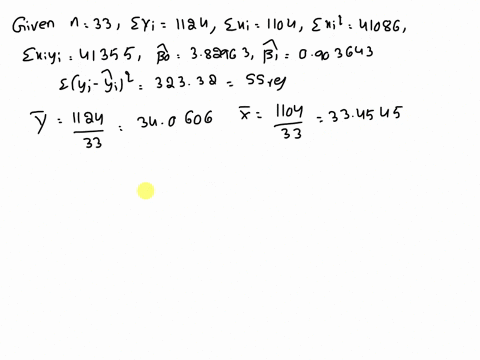 Given n=33, Σyi = 1124, Σxi = 1104, Σxi² = 41086,
Σxiyi = 41355, β̂0 = 3.82963, β̂1 = 0.903643
Σ(yi-ŷi)² = 323.32 = SSreg
ȳ = 1124/33 = 34.0606 x̄ = 1104/33 = 33.4545